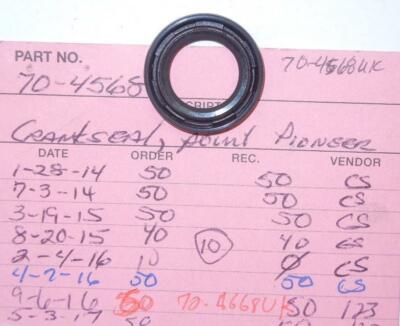 PART NO. 70-4568UK
70-4568
CRANKSEAL, POINT PIONEER
DATE ORDER REC. VENDOR
1-28-14 50 50 CS
7-3-14 50 50 CS
3-19-15 50 50 CS
8-20-15 40 10 40 CS
2-4-16 10 0 CS
4-7-16 50 50 CS
9-6-16 50 70-4668UK 50 123
5-3-17 50